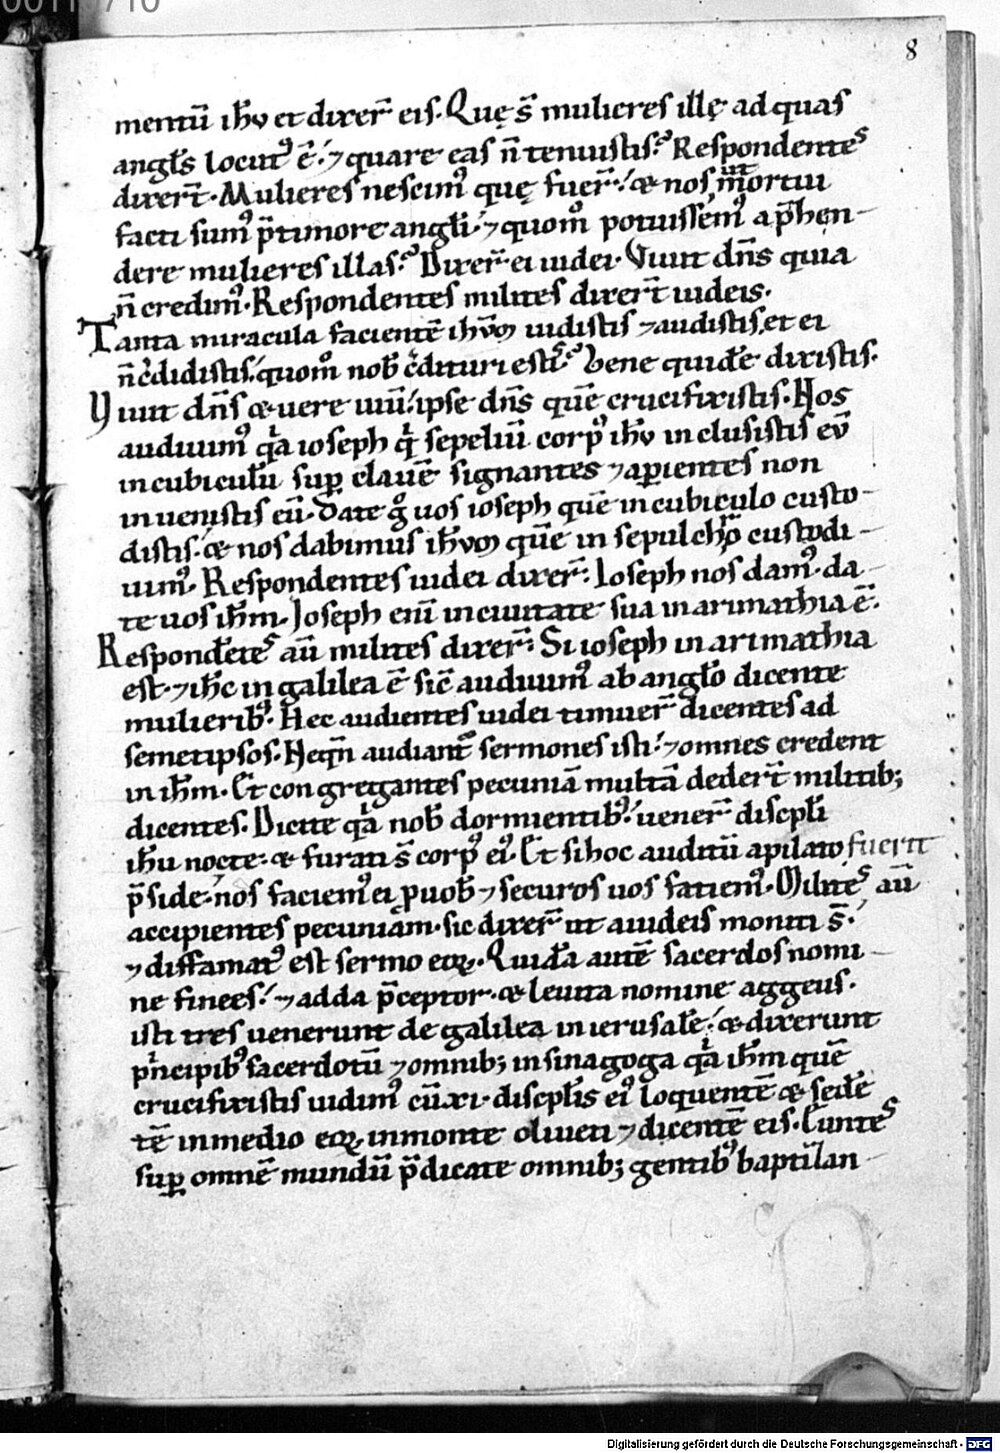 8
mentū ih̄v et dixer̄ eis. Quę s̄ mulieres illę ad quas
angl̄s locut᷒ ē. ⁊ quare eas n̄ tenuistis? Respondentes
dixer̄t. Mulieres nescim᷒ quę fuer̄. & nos ut mortui
facti sum᷒ p̄ timore angl̄i. ⁊ quom̊ potuissem᷒ app̄hen-
dere mulieres illas? Dixer̄ ei iudei. Viuit dn̄s quia
n̄ credim᷒. Respondentes milites dixer̄t iudeis.
Tanta miracula facientē ih̄vm uidistis ⁊ audistis, et ei
n̄ c̄didistis. quom̊ nob̄ c̄dituri estis? bene quidē dixistis.
Viuit dn̄s & uere uiuit ipse dn̄s quē crucifixistis. Nos
audiuim᷒ qa ioseph q sepeliuit corp᷒ ih̄v inclusistis eū
in cubiculū sup clauē signantes ⁊ apientes non
inuenistis eū. Date g̊ uos ioseph quē in cubiculo custo-
distis. & nos dabimus ih̄vm quē in sepulchro custodi-
uim᷒. Respondentes iudei dixer̄. Ioseph nos dam᷒. da-
te uos ih̄m. Ioseph eni in ciuitate sua in arimathia ē.
Respondētes aū milites dixer̄. Si ioseph in arimathia
est. ⁊ ih̄c in galilea ē sic audiuim᷒ ab anglo dicente
mulierib᷒. Hec audientes iudei timuer̄ dicentes ad
semetipsos. Neqn̄ audiant sermones isti. ⁊ omnes credent
in ih̄m. Et congregantes pecuniā multā deder̄t militib;
dicentes. Dicite qa nob̄ dormientib᷒. uener̄ discpl̄i
ih̄u nocte. & furati s̄ corp᷒ ei᷒. Et si hoc auditū a pilato fuerit
p̄side. nos faciem᷒ ei p uob̄ ⁊ securos uos fatiem᷒. Milites aū
accipientes pecuniam. sic dixer̄ ut a iudeis moniti s̄.
⁊ diffamat᷒ est sermo eoꝝ. Quidā autē sacerdos nomi-
ne finees. ⁊ adda p̄ceptor. & leuita nomine aggeus.
isti tres uenerunt de galilea in ierusalē. & dixerunt
pncipib᷒ sacerdotū ⁊ omnib; in sinagoga qa ih̄m quē
crucifixistis uidim᷒ cū .xi. discpl̄is ei᷒ loquentē & sedē-
tē in medio eoꝝ in monte oliueti ⁊ dicentē eis. Euntes
sup omnē mundū p̄dicate omnib; gentib᷒ baptizan-
Digitalisierung gefördert durch die Deutsche Forschungsgemeinschaft - DFG